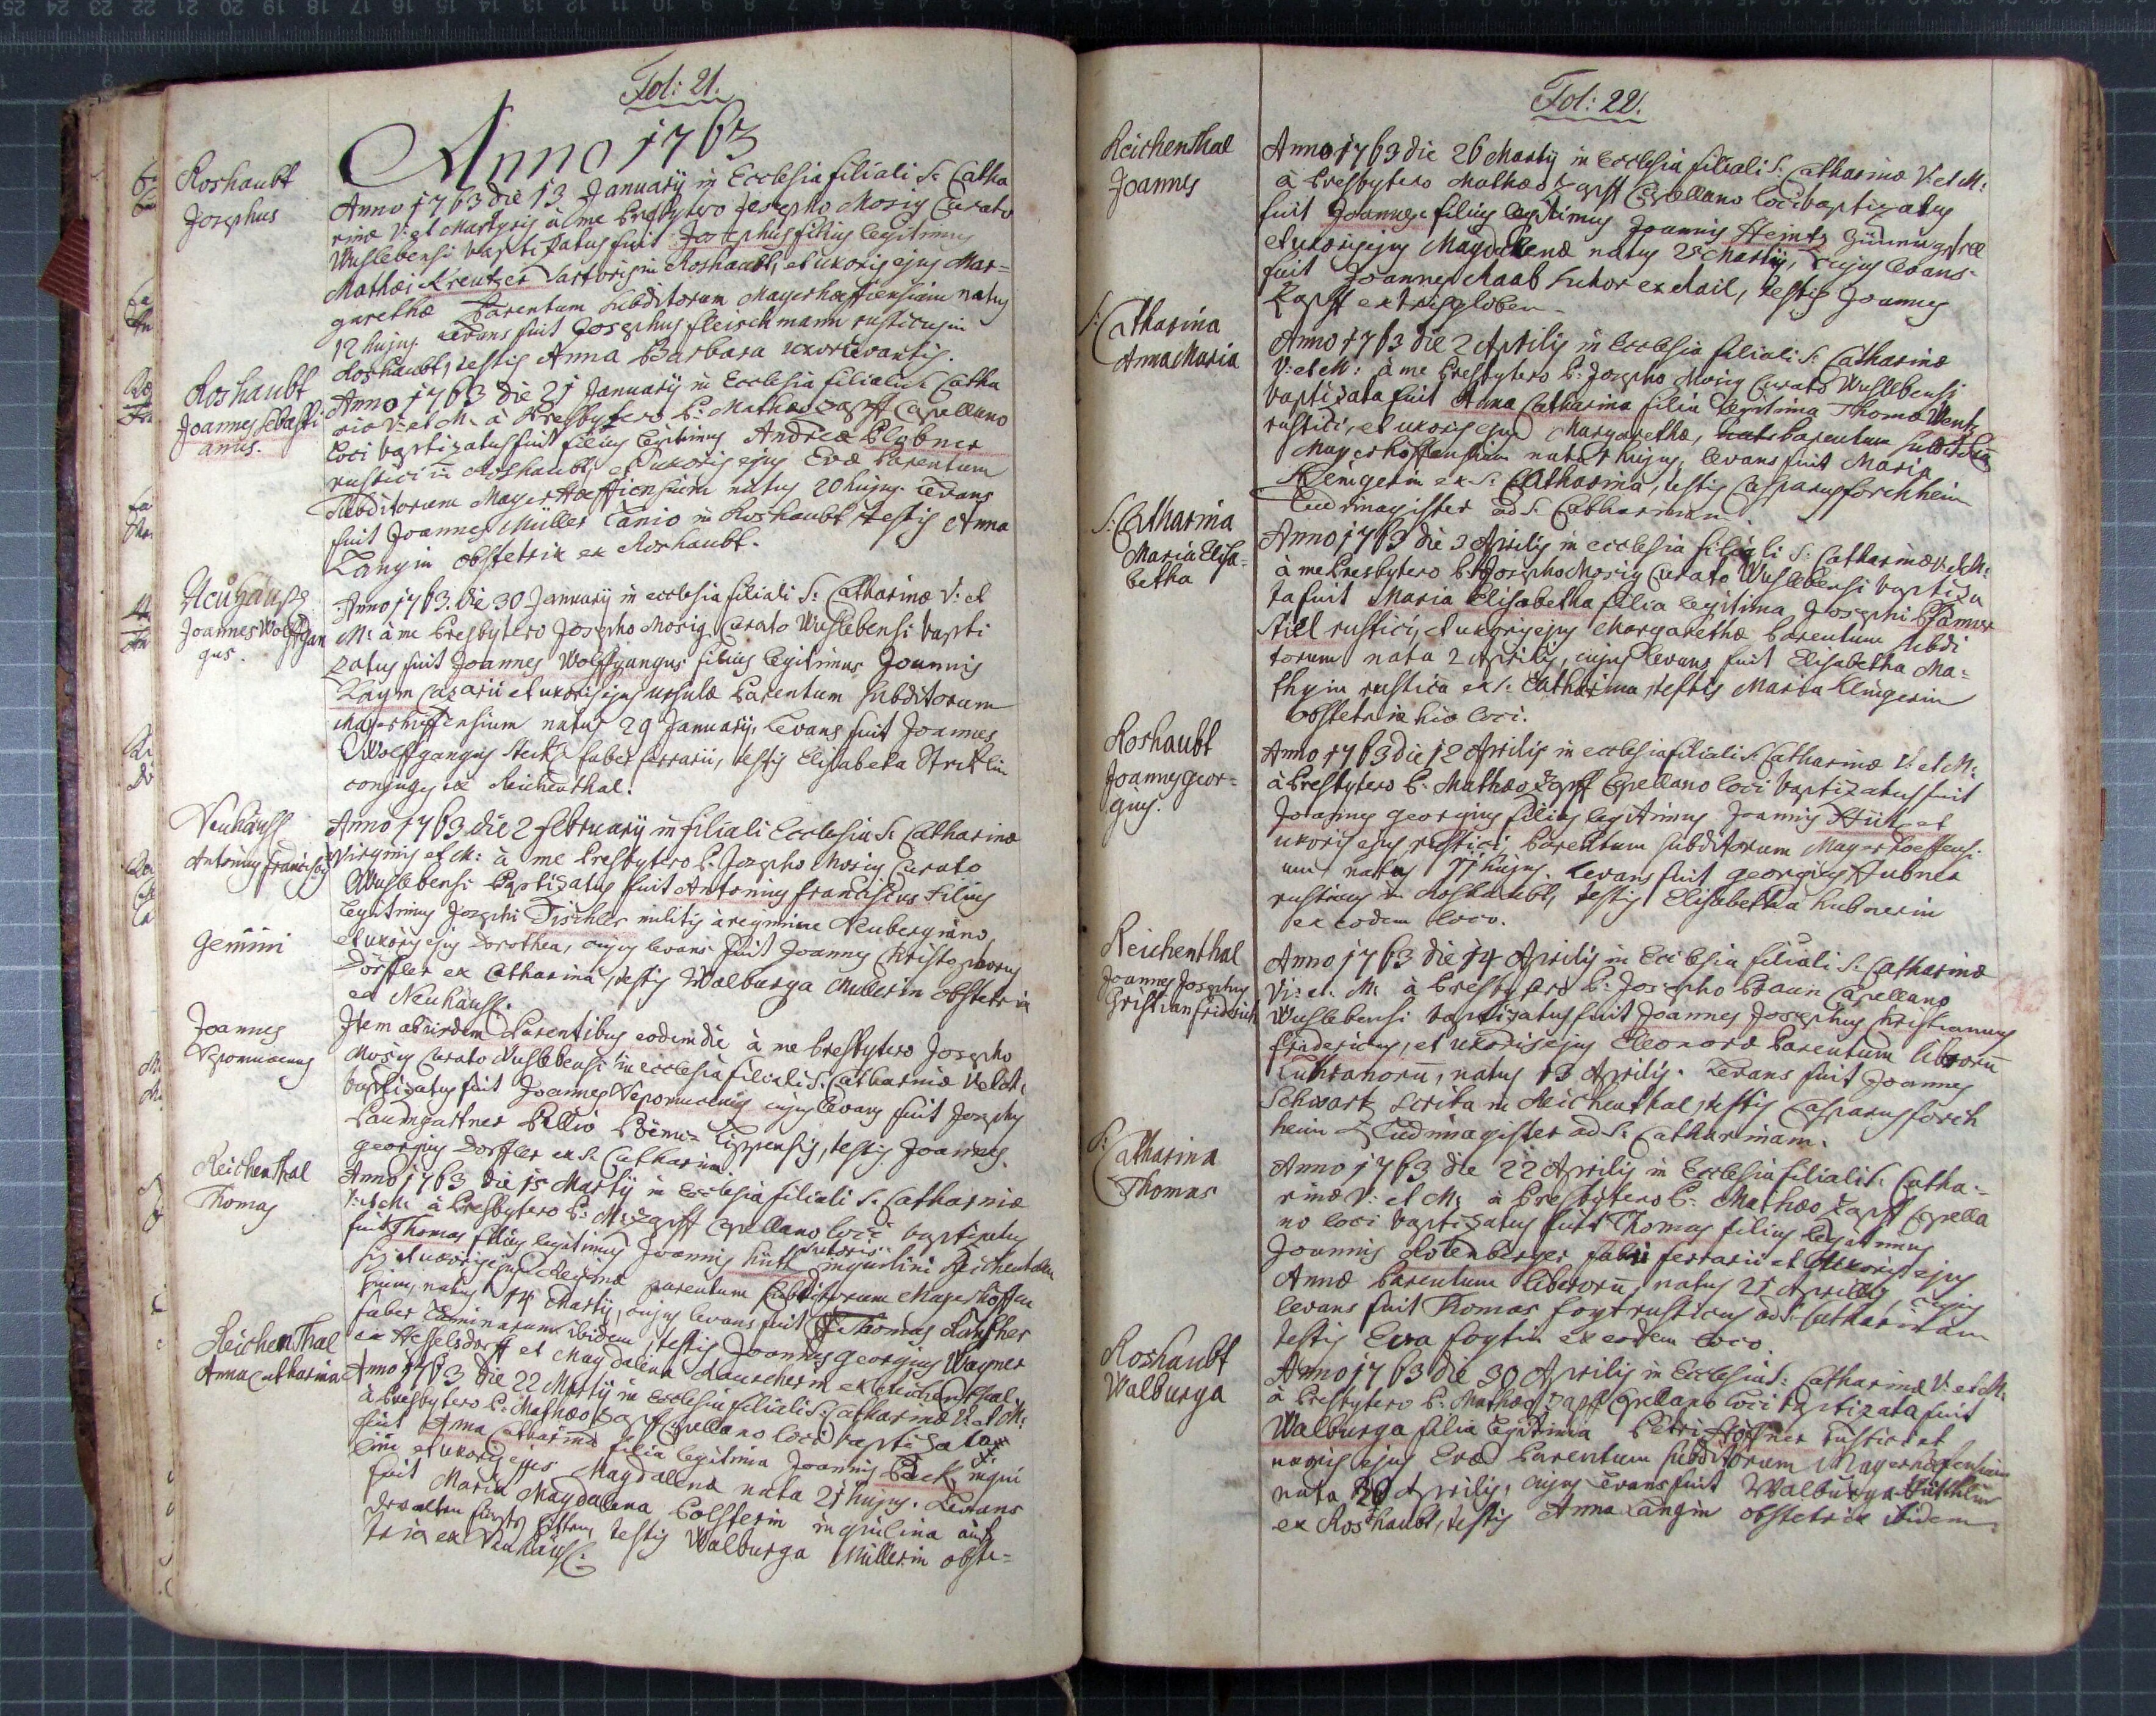 Fol: 21.
Anno 1763
Roshaubt
Josephus
Anno 1763 die 13 Januarÿ in Ecclesia filiali S: Catha
rinæ V: et Martyris à me Presbytero Josepho Mosig Curato
Wuslebensi baptizatus fuit Josephus filius legitimus
Mathæi Kreutzer Sartoris in Roshaubt, et uxoris ejus Mar=
garethæ Parentum subditorum Mayerhoffensium natus
12 hujus. Levans fuit Josephus fleischmann rusticus in
Roshaubt, testis Anna Barbara uxor levantis.
Roshaubt
Joannes Sebasti
anus.
Anno 1763 die 21 Januarÿ in Ecclesia filiali S: Catha
riæ V: et M: à Presbytero P: Mathæo Zapff Capellano
loci baptizatus fuit filius legitimus Andreæ Plabner
rustici in Roshaubt, et uxoris ejus Evæ Parentum
Subditorum Mayerhoffiensium natus 20 hujus. Levans
fuit Joannes Müller Lanio in Roshaubt, testis Anna
Langin obstetrix ex Roshaubt.
Neuhäusl
Joannes Wolffgan
gus.
Anno 1763. die 30 Januarÿ in ecclesia filiali S: Catharinæ V: et
M: à me Presbytero Josepho Mosig Curato Wuslebensi bapti
zatus fuit Joannes Wolffgangus filius legitimus Joannis
et uxoris ejus Ursulæ Parentum Subditorum
Mayerhoffensium natus 29 Januarÿ, Levans fuit Joannes
Wolffgangus faber ferrarii, testis Elisabeta
conjuges ex Reichenthal.
Neuhäusl
Antonius franciscus
Anno 1763 die 2 februarÿ in filiali Ecclesia S: Catharinæ
Virginis et M: à me Presbytero P: Josepho Mosig Curato
Wuslebensi Baptizatus fuit Antonius franciscus filius
legitimus Josephi Tischler militis à regimine Neubergiano,
et uxoris ejus Dorothea, cujus levans fuit Joannes Christophorus
Dörffler ex Catharina, testis Walburga Müllerin obstetrix
ex Neuhäusl.
gemini
Joannes
Nepomucenus
Item ab iisdem Parentibus eodem die à me Presbytero Josepho
Mosig Curato Wuslebensi in ecclesia filiali S: Catharinæ V: et M:
baptizatus fuit Joannes Nepomucenus cujus Levans fuit Josephus
Paumgartner Pellio testis Joannes
georgius Dorffler ex S: Catharina.
Reichenthal
Thomas
Anno 1763 die 15 Martÿ in Ecclesia filiali S: Catharinæ
V: et M: à Presbytero P: M: Zapff Capellano loci baptizatus
fuit Thomas filius legitimus Joannis Hütt sutoris inquilini Reichentalen
sis et uxoris ejus Reginæ parentum subditorum Mayerhöffen
sium, natus 14 Martÿ, cujus levans fuit Thomas
faber ibidem, testis Joannes georgius Wagner
ex Hesselsdorff et Magdalena Rauscherin ex Reichenthal.
Reichenthal
Anna Catharina
Anno 1763 die 22 Martÿ in Ecclesia filiali S: Catharinæ V: et M:
à Presbytero P: Mathæo Zapff Capellano loci baptizata
fuit Anna Catharina filia legitima Joannis Pack inqui
lini et uxoris ejus Magdalena nata 21 hujus. Levans
fuit Maria Magdalena Polsterin inquilina auf
testis Walburga Müllerin obste=
trix ex Neuhäusl.
Fol: 22.
Reichenthal
Joannes
Anno 1763 die 26 Martÿ in Ecclesia filiali S: Catharinæ V: et M:
à Presbytero Mathæo Zapff Capellano loci baptizatus
fuit Joannes filius legitimus Joannis Heintz
et uxoris ejus Magdalenæ natus 25 Martÿ, cujus levans
fuit Joannes Raab sutor ex testis Joannes
Zapff
S: Catharina
Anna Maria
Anno 1763 die 2 Aprilis in Ecclesia filiali S: Catharinæ
V: et M: à me Presbytero P: Josepho Mosig Curato Wuslebensi
baptizata fuit Anna Catharina filia legitima Thomæ Wentz
rustici, et uxoris ejus Margarethæ, Parentum
Mayerhoffensium nata 1 hujus, levans fuit Maria
ex S: Catharina, testis Casparus forchheim
Ludimagister ad S: Catharinam.
S: Catharina
Maria Elisa=
betha
Anno 1763 die 3 Aprilis in ecclesia filiali S: Catharinæ V: et M:
à me Presbytero P: Josepho Mosig Curato Wuslebensi baptiza
ta fuit Maria Elisabetha filia legitima Josephi
rustici, et uxoris ejus Margarethæ Parentum subdi
torum nata 2 Aprilis, cujus levans fuit Elisabetha Ma=
thyin rustica ex S: Catharina, testis Maria Klingerin
obstetrix loci.
Roshaubt
Joannes geor=
gius.
Anno 1763 die 12 Aprilis in ecclesia filiali S: Catharinæ V: et M:
à Presbytero P: Mathæo Zapff Capellano loci baptizatus fuit
Joannes georgius filius legitimus Joannis et
uxoris ejus rustici, Parentum subditorum Mayerhoeffensi
um natus 11 hujus. Levans fuit georgius Hubner
rusticus in Roshaubt, testis Elisabetha Hubnerin
ex eodem loco.
Reichenthal
Joannes Josephus
Christian fridrich
Anno 1763 die 14 Aprilis in Ecclesia filiali S: Catharinæ
V: et M: à Presbytero P: Josepho Braun Capellano
Wuslebensi baptizatus fuit Joannes Josephus Christianus
fridericus, et uxoris ejus Eleonoræ Parentum liberorū
natus 13 Aprilis. Levans fuit Joannes
Schwartz scriba in Reichenthal, testis Casparus forch
heim Ludimagister ad S: Catharinam.
S: Catharina
Thomas
Anno 1763 die 22 Aprilis in Ecclesia filiali S: Catha=
rinæ V: et M: à Presbytero P: Mathæo Zapff Capella
no loci baptizatus fuit Thomas filius legitimus
Joannis Rotenberger fabri ferrarii et uxoris ejus
Annæ Parentum liberorū, natus 21 Aprilis, cujus
levans fuit Thomas foyt rusticus ad S: Catharinam
testis Eva foytin ex eodem loco.
Roshaubt
Walburga
Anno 1763 die 30 Aprilis in Ecclesia S: Catharinæ V: et M:
à Presbytero P: Mathæo Zapff Capellano loci baptizata fuit
Walburga filia legitima Petri rustici et
uxoris ejus Evæ Parentum subditorum Mayerhöfensium
nata Aprilis, cujus levans fuit Walburga
ex Roshaubt, testis Anna Langin obstetrix ibidem.